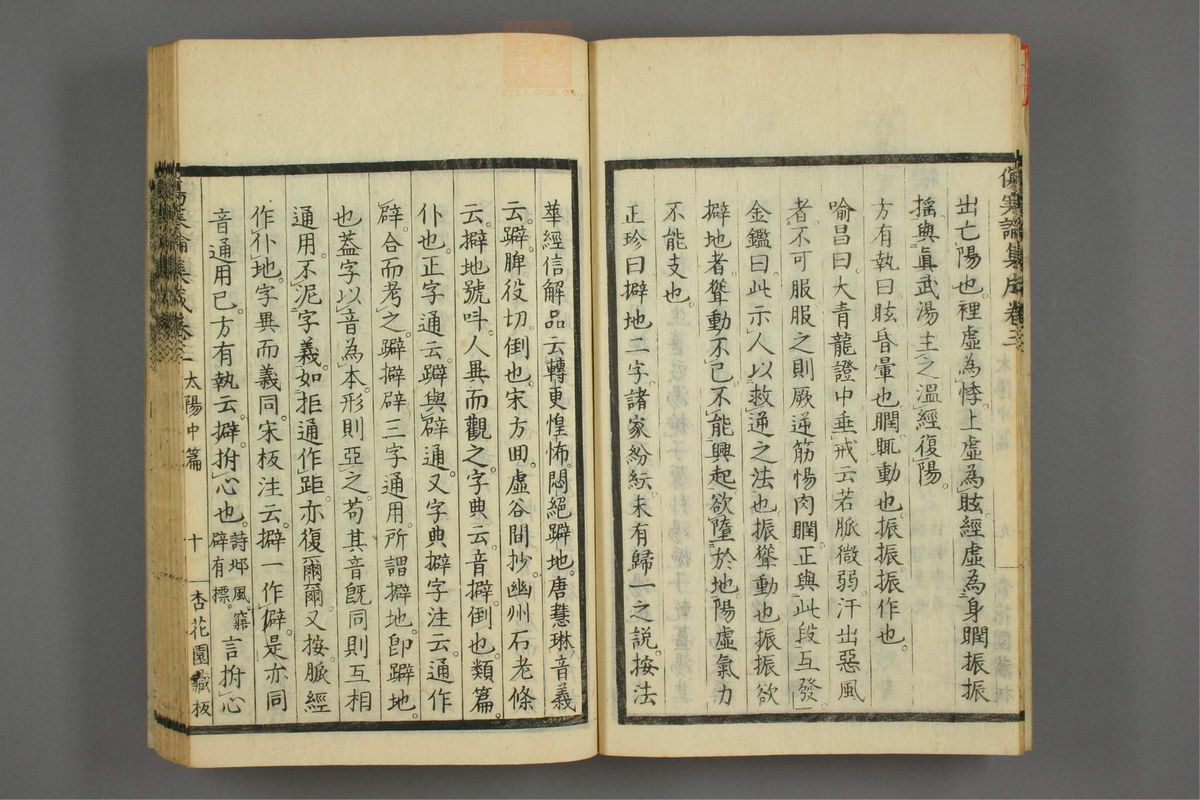 傷寒論集成卷二
出亡陽也。裡虛為悸。上虛為眩。經虛為身瞤振振
搖。與眞武湯主之溫經復陽。
方有執曰眩昏暈也。瞤輒動也。振振。振作也。
喻昌曰。大青龍證中垂戒云若脈微弱汗出惡風
者。不可服服之則厥逆筋惕肉瞤。正與此段互發
金鑑曰。此示人以救逆之法也。振聳動也振振欲
擗地者。聳動不已。不能興起欲墮於地。陽虛氣力
不能支也。
正珍曰擗地二字。諸家紛紜。未有歸一之說。按法
華經信解品云轉更惶怖。悶絕躃地。唐慧琳音義
云。躃。脾役切。倒也。宋方田。虛谷間抄。幽州石老條
云。擗地號呌。人異而觀之。字典云。音擗。倒也。類篇。
仆也。正字通云。躃與躄通。又字典擗字注云。通作
辟。合而考之。躃擗辟三字通用。所謂擗地。卽躃地。
也蓋字以音為本。形則亞之。苟其音旣同則互相
通用。不泥字義。如拒通作距。亦復爾爾。又按。脈經
作仆地。字異而義同。宋板注云。擗一作僻。是亦同
音通用已。方有執云。擗。拊心也。詩邶風。寤
辟有摽。言拊心
傷寒論集成卷二 太陽中篇 十 杏花園藏板